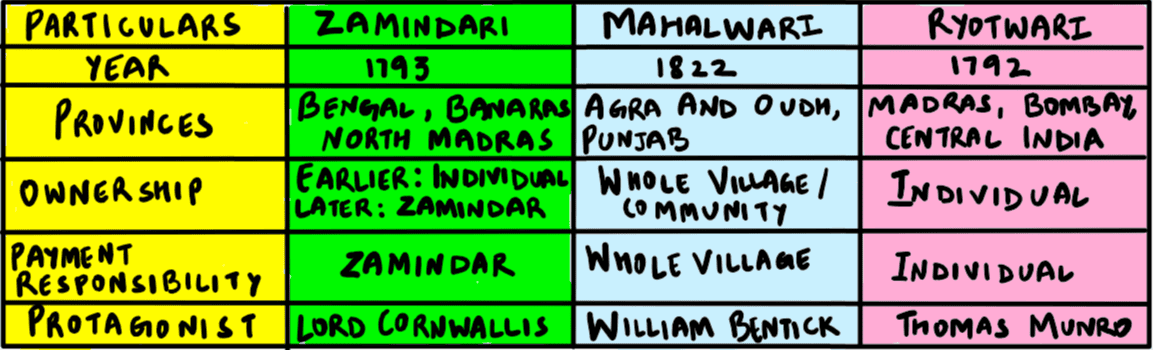 PARTICULARS ZAMINDARI MAHALWARI RYOTWARI
YEAR 1793 1822 1792
PROVINCES BENGAL, BANARAS NORTH MADRAS AGRA AND OUDH, PUNJAB MADRAS, BOMBAY, CENTRAL INDIA
OWNERSHIP EARLIER: INDIVIDUAL LATER: ZAMINDAR WHOLE VILLAGE / COMMUNITY INDIVIDUAL
PAYMENT RESPONSIBILITY ZAMINDAR WHOLE VILLAGE INDIVIDUAL
PROTAGONIST LORD CORNWALLIS WILLIAM BENTICK THOMAS MUNRO